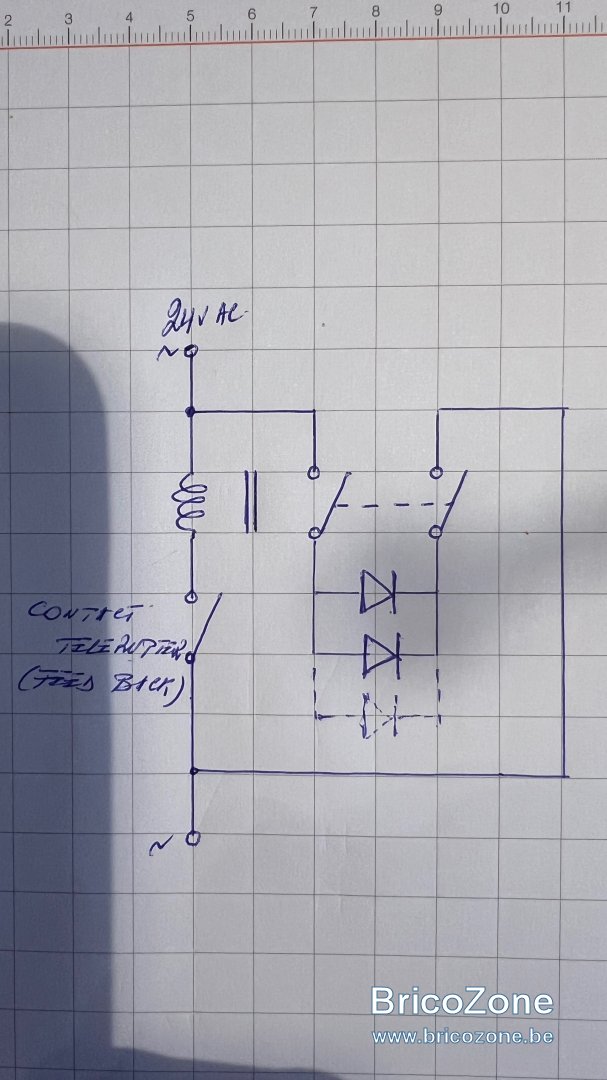 2 3 4 5 6 7 8 9 10 11
24V AC
~
CONTACT
TELERUPTEUR
(FEED BACK)
~
BricoZone
www.bricozone.be